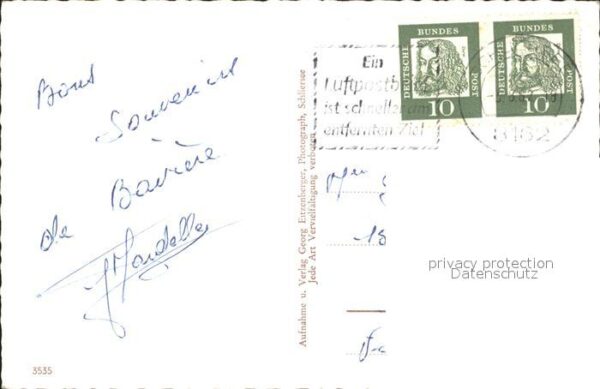 Bons
Souvenirs
de Bavière
Aufnahme u. Verlag Georg Eitzenberger, Photograph, Schliersee
Jede Art Vervielfältigung verboten
3535
Ein
Luftpostbrief
ist schneller am
entfernten Ziel
DEUTSCHE
BUNDES
POST
10
DEUTSCHE
BUNDES
POST
10
8162
18
privacy protection
Datenschutz